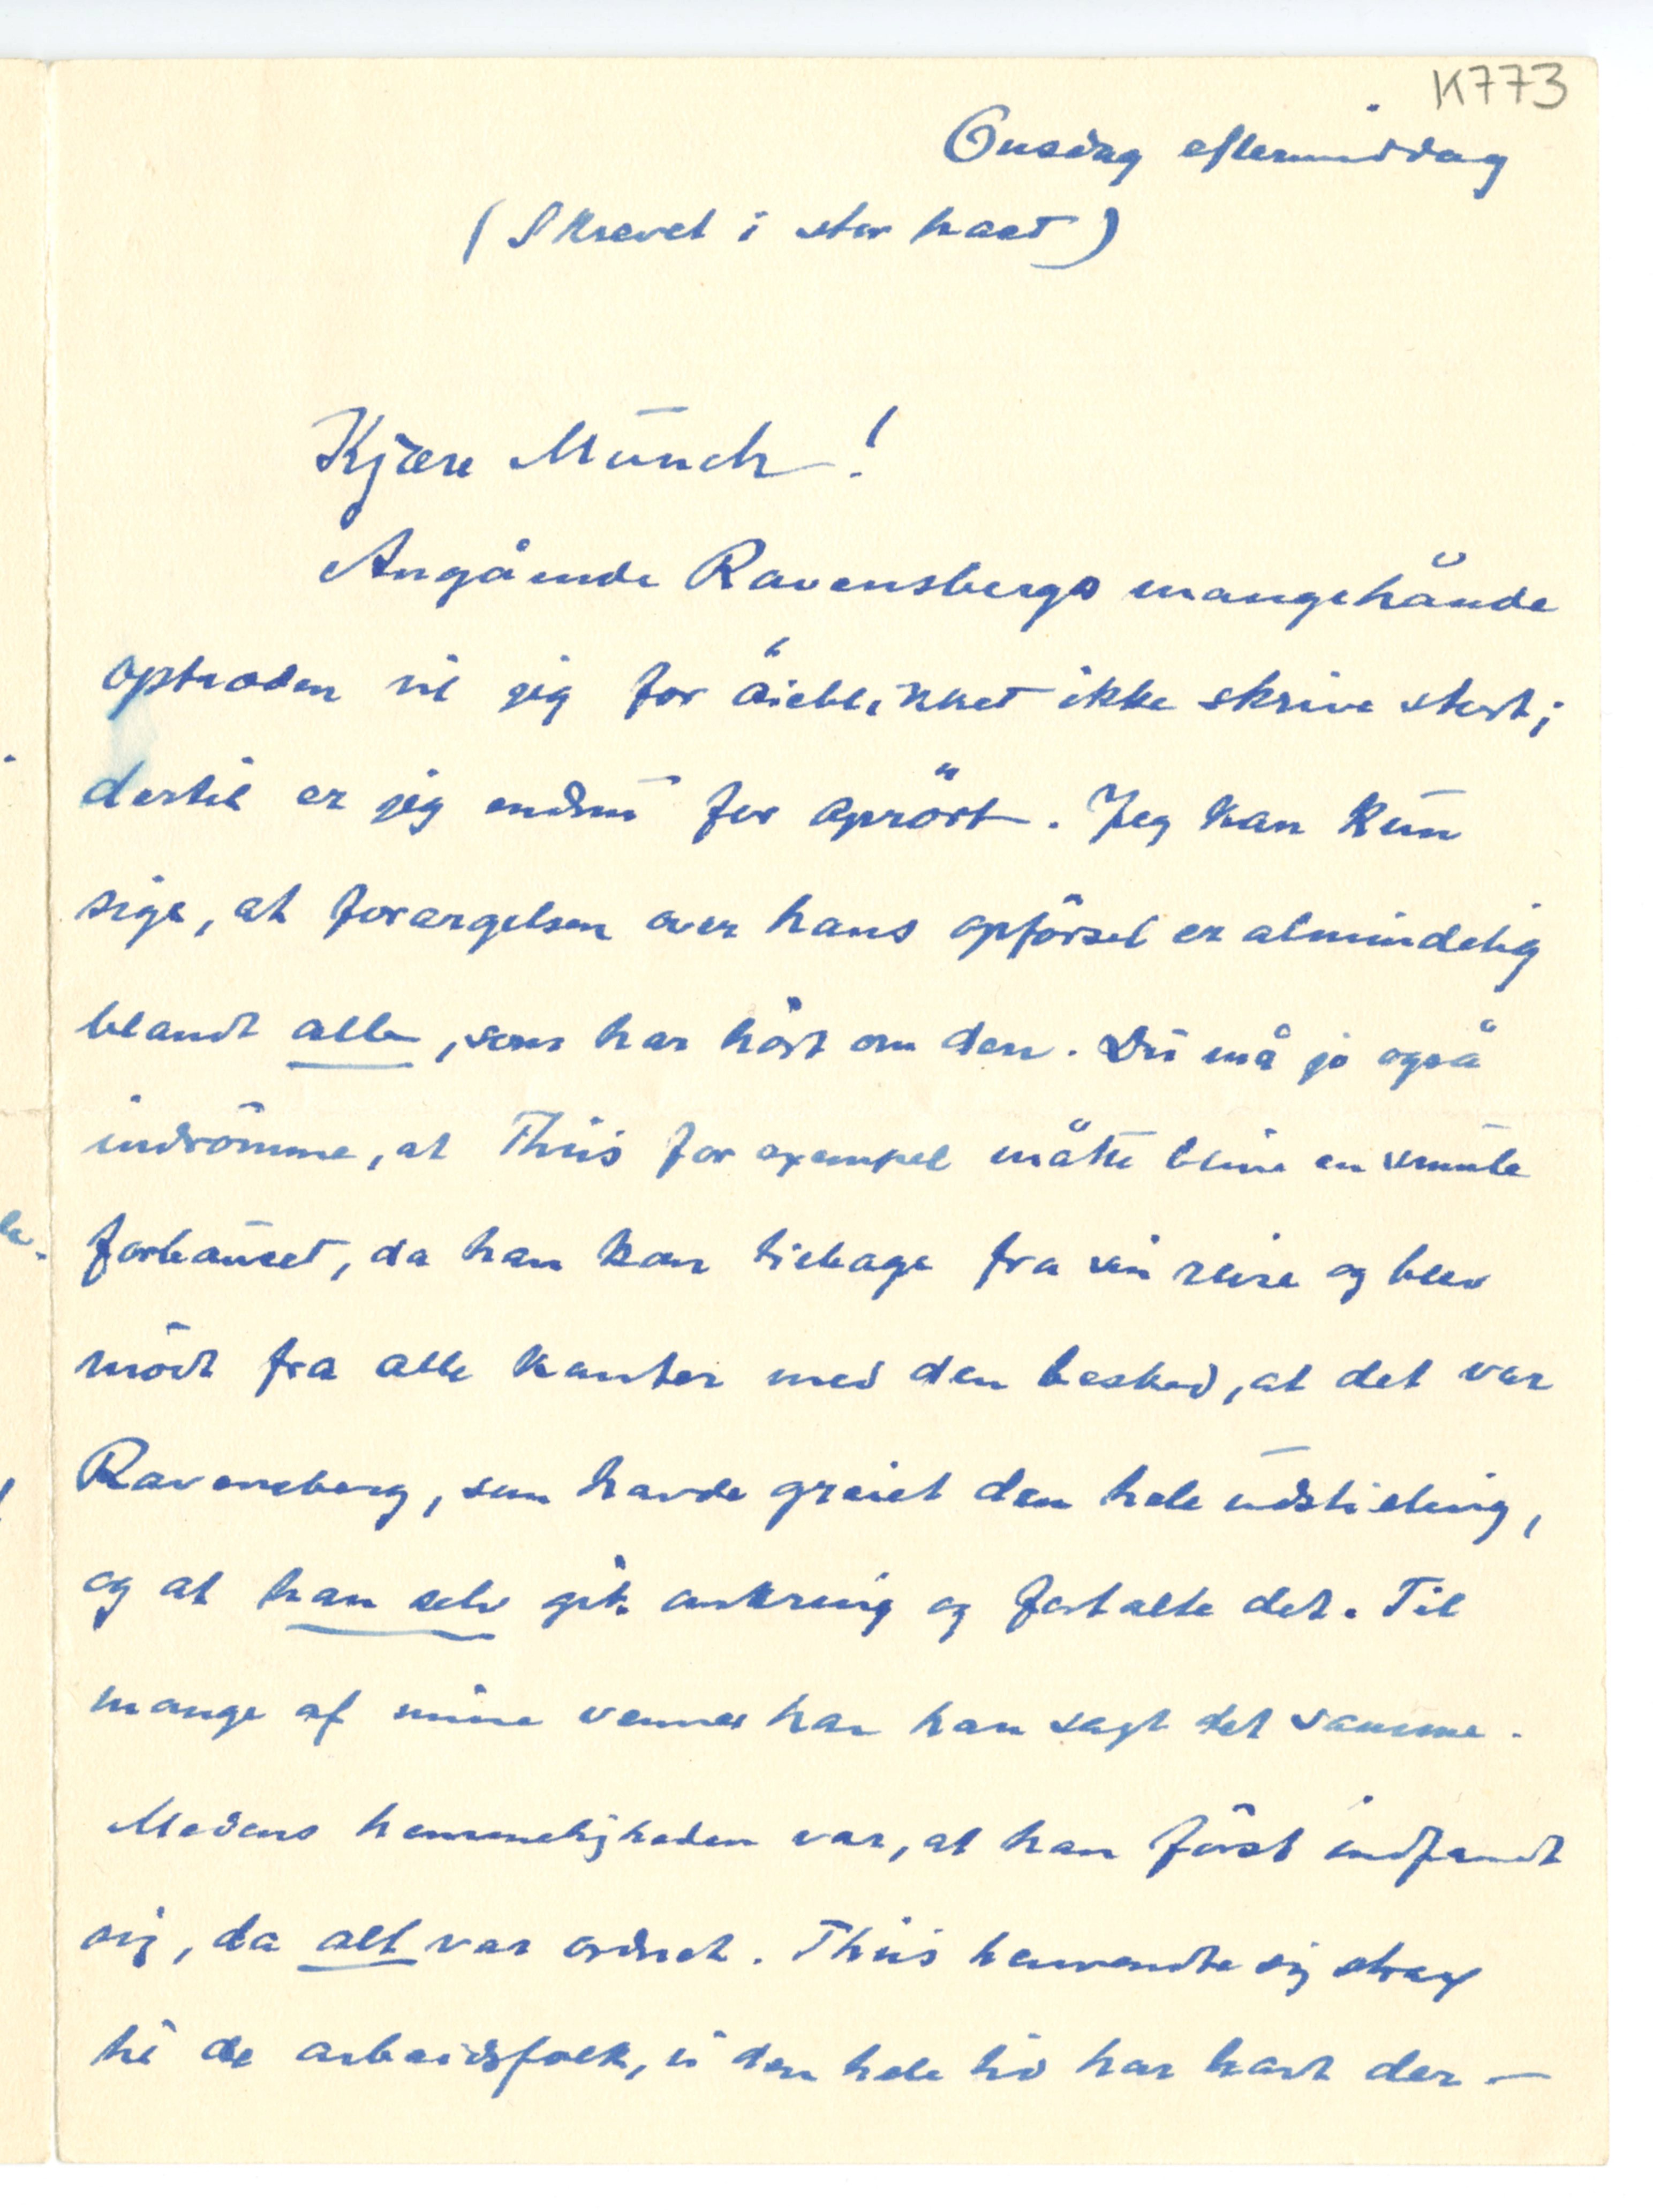 K773
Onsdag eftermiddag
(Skrevet i stor hast)
Kjære Munch!
Angående Ravensbergs mangehånde
optræden vil jeg for öieblikket ikke skrive stort;
dertil er jeg endnu for oprört. Jeg kan kun
sige, at forargelsen over hans opförsel er almindelig
blandt alle, som har hört om den. Du må jo også
indrömme, at Thiis for exempel måtte blive en smule
forbauset, da han kom tilbage fra sin reise og blev
mödt fra alle kanter med den besked, at det var
Ravensberg, som havde greiet den hele udstilling,
og at han selv gik omkring og fortalte det. Til
mange af mine venner har han sagt det samme.
Medens hemmeligheden var, at han först indfandt
sig, da alt var ordnet. Thiis henvendte sig strax
til de arbeidsfolk, vi den hele tid har havt der –